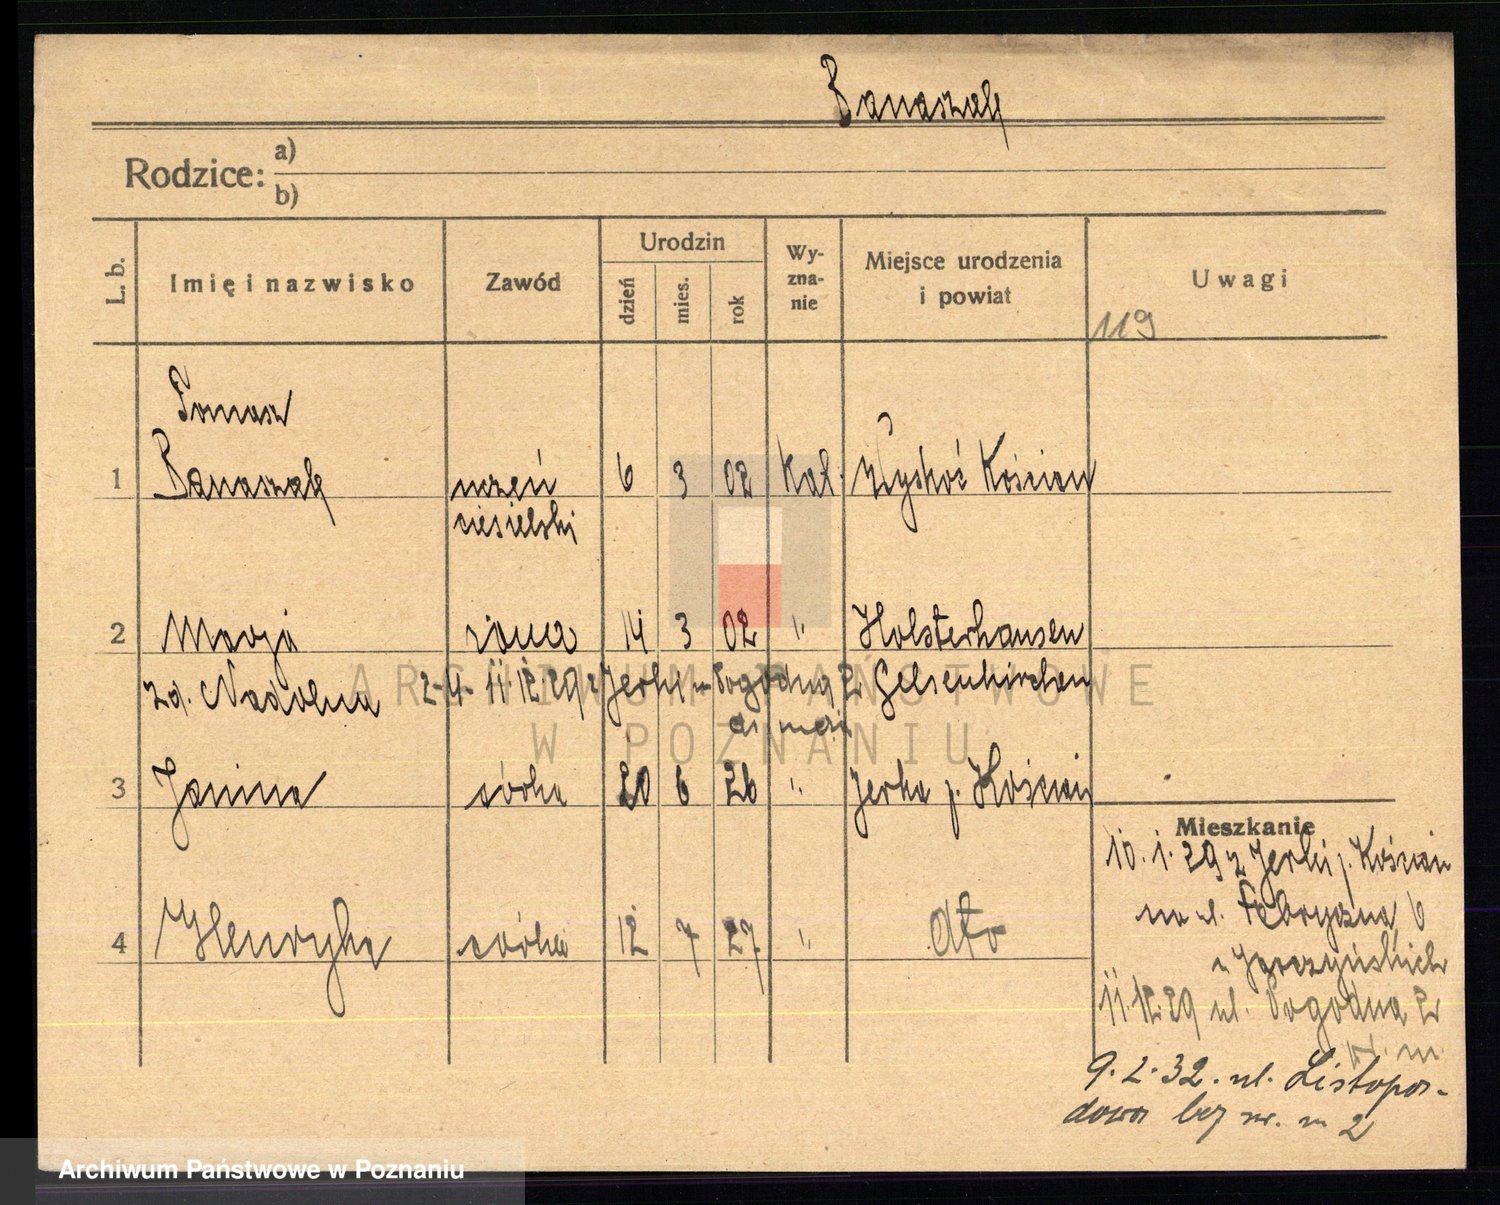 Banaszak
Rodzice: a)
b)
L. b.
Imię i nazwisko
Zawód
Urodzin
dzień
mies.
rok
Wy-
zna-
nie
Miejsce urodzenia
i powiat
Uwagi
119
Tomasz
1 Banaszak uczeń 6 3 02 kat. Wyskoć Kościan
ciesielski
2 Marja żona 14 3 02 " Holsterhausen
zd. Nadolna 2-4- 11.12.29 z Jerki Pogodna 2 Gelsenkirchen
3 Janina córka 20 6 26 " Jerka p. Kościan
Mieszkanie
10.1.29 z Jerki p. Kościan
na ul. Fabryczna 6
u Jarczyńskich
4 Henryka córka 12 7 27 " dto
11.12.29 ul. Pogodna 2
9.2.32. ul. Listopa-
dowa bez nr. m 2
ARCHIWUM PAŃSTWOWE
W POZNANIU
Archiwum Państwowe w Poznaniu